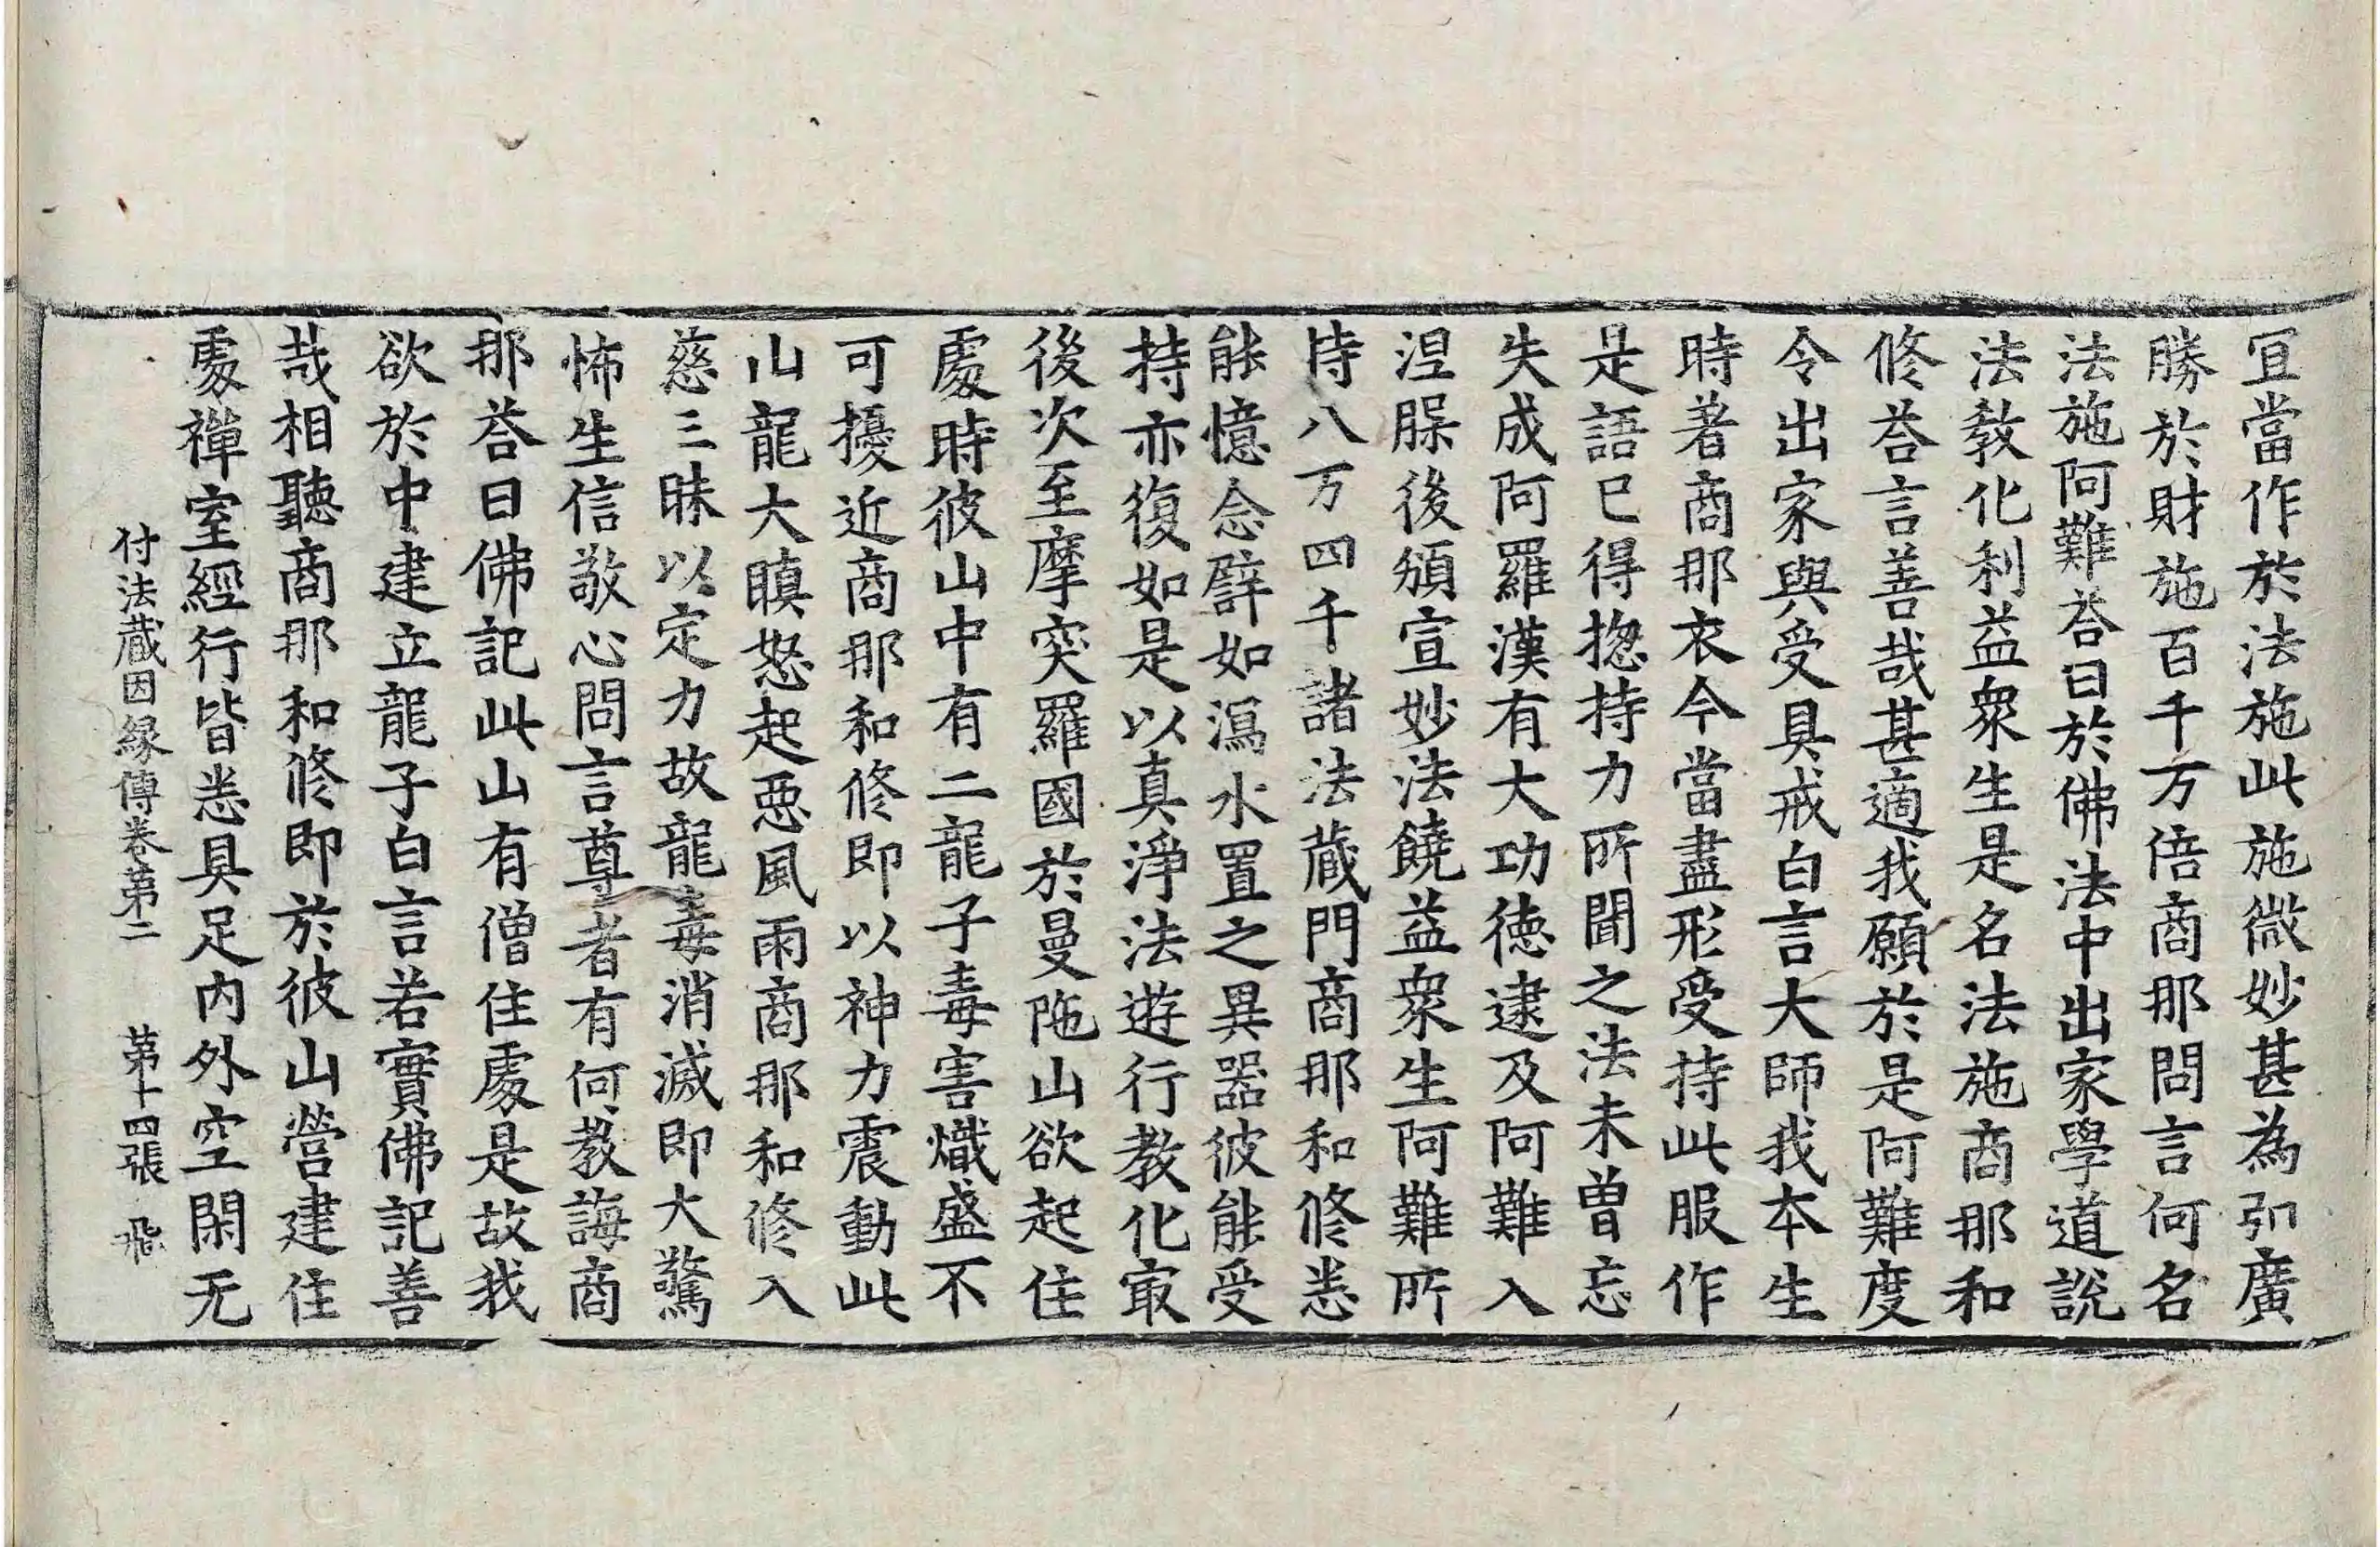 冝當作於法施此施微妙甚為弘廣
勝於財施百千万倍商那問言何名
法施阿難荅曰於佛法中出家學道說
法教化利益衆生是名法施商那和
修荅言善哉甚適我願於是阿難度
令出家與受具戒白言大師我本生
時著商那衣今當盡形受持此服作
是語已得揔持力所聞之法未曽忘
失成阿羅漢有大功徳逮及阿難入
涅槃後頒宣妙法饒益衆生阿難所
持八万四千諸法蔵門商那和修悉
能憶念譬如瀉水置之異器彼能受
持亦復如是以真淨法遊行教化冣
後次至摩突羅國於曼陁山欲起住
處時彼山中有二龍子毒害熾盛不
可擾近商那和修即以神力震動此
山龍大瞋怒起惡風雨商那和修入
慈三昧以定力故龍毒消滅即大驚
怖生信敬心問言尊者有何教誨商
那荅曰佛記此山有僧住處是故我
欲於中建立龍子白言若實佛記善
哉相聽商那和修即於彼山營建住
處禪室經行皆悉具足內外空閑无
付法蔵因緣傳卷第二　第十四張　飛